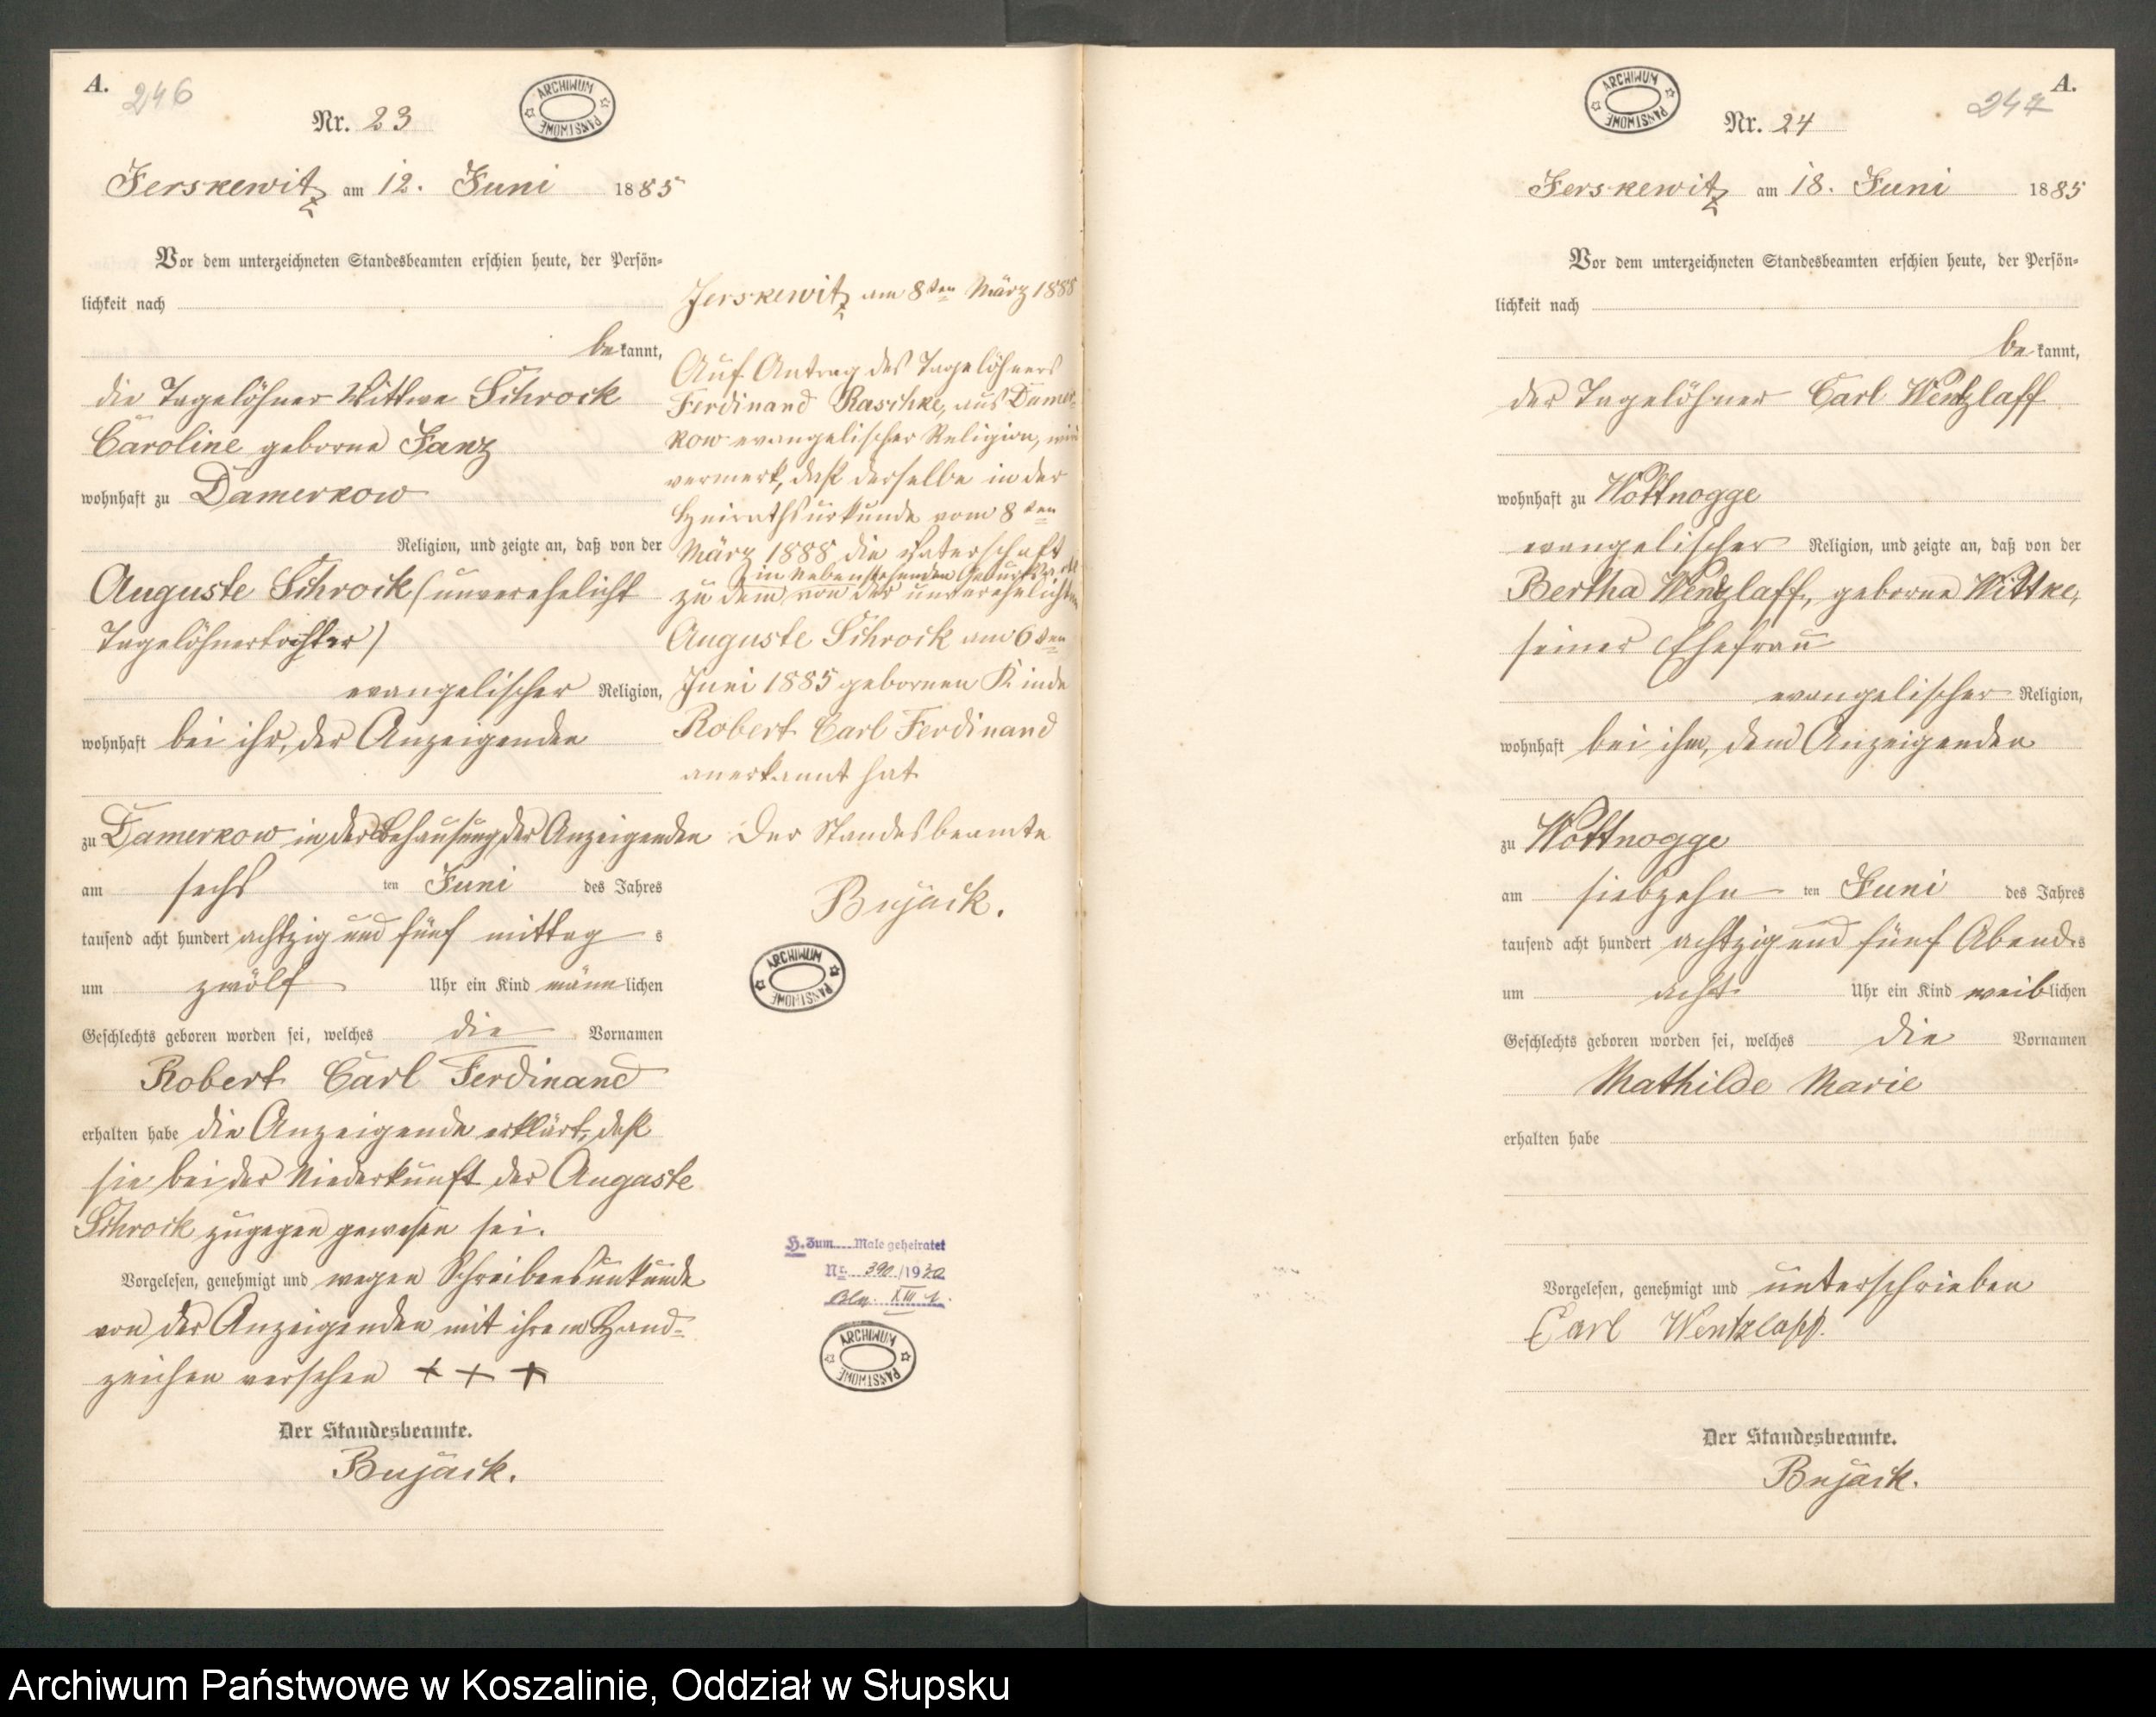 A. 246
Nr. 23
ARCHIWUM PAŃSTWOWE
Jerskewitz am 12. Juni 1885
Vor dem unterzeichneten Standesbeamten erschien heute, der Persön-
lichkeit nach
bekannt,
die Tagelöhner Wittwe Schrock
Caroline geborne Janz
wohnhaft zu Damerkow
Religion, und zeigte an, daß von der
Auguste Schrock (unverehelicht
Tagelöhnertochter)
evangelischer Religion,
wohnhaft bei ihr, der Anzeigenden
zu Damerkow in der Behausung der Anzeigenden
am sechs ten Juni des Jahres
tausend acht hundert achtzig und fünf mittag s
um zwölf Uhr ein Kind männlichen
Geschlechts geboren worden sei, welches die Vornamen
Robert Carl Ferdinand
erhalten habe die Anzeigende erklärt, daß
sie bei der Niederkunft der Auguste
Schrock zugegen gewesen sei.
Vorgelesen, genehmigt und wegen Schreibensunkunde
von der Anzeigenden mit ihrem Hand-
zeichen versehen + + +
Der Standesbeamte.
Bujack.
Jerskewitz am 8ten März 1888
Auf Antrag des Tagelöhners
Ferdinand Raschke, aus Damer-
kow evangelischer Religion, wird
vermerk, daß derselbe in der
Heirathsurkunde vom 8ten
März 1888 die Vaterschaft
in nebenstehenden Geburts
zu dem von der unverehelichten
Auguste Schrock am 6ten
Juni 1885 gebornen Kinde
Robert Carl Ferdinand
anerkannt hat
Der Standesbeamte
Bujack.
ARCHIWUM PAŃSTWOWE
H. Zum Male geheiratet
Nr. 390/1930
Bln. XIII 1.
ARCHIWUM PAŃSTWOWE
A. 247
ARCHIWUM PAŃSTWOWE
Nr. 24
Jerskewitz am 18. Juni 1885
Vor dem unterzeichneten Standesbeamten erschien heute, der Persön-
lichkeit nach
bekannt,
der Tagelöhner Carl Wentzlaff
wohnhaft zu Wottnogge
evangelischer Religion, und zeigte an, daß von der
Bertha Wentzlaff, geborne Wittke,
seiner Ehefrau
evangelischer Religion,
wohnhaft bei ihm, dem Anzeigenden
zu Wottnogge
am siebzehn ten Juni des Jahres
tausend acht hundert achtzig und fünf Abends
um acht Uhr ein Kind weiblichen
Geschlechts geboren worden sei, welches die Vornamen
Mathilde Marie
erhalten habe
Vorgelesen, genehmigt und unterschrieben
Carl Wentzlaff.
Der Standesbeamte.
Bujack.
Archiwum Państwowe w Koszalinie, Oddział w Słupsku